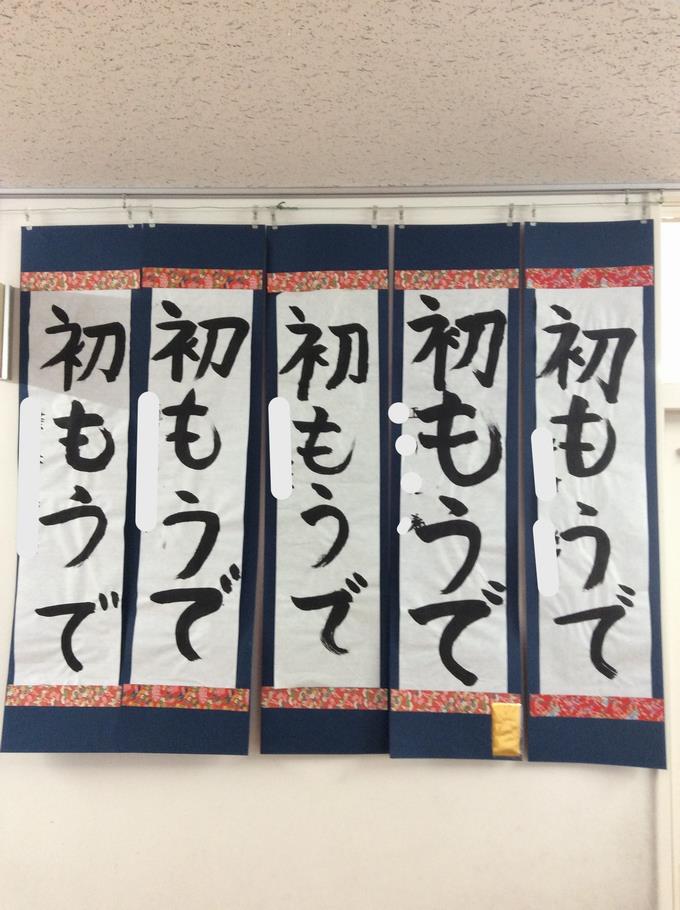 初もうで
初もうで
初もうで
初もうで
初もうで